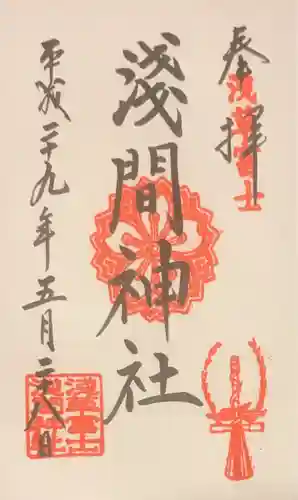 奉拝
淺間神社
平成二十九年五月二十八日